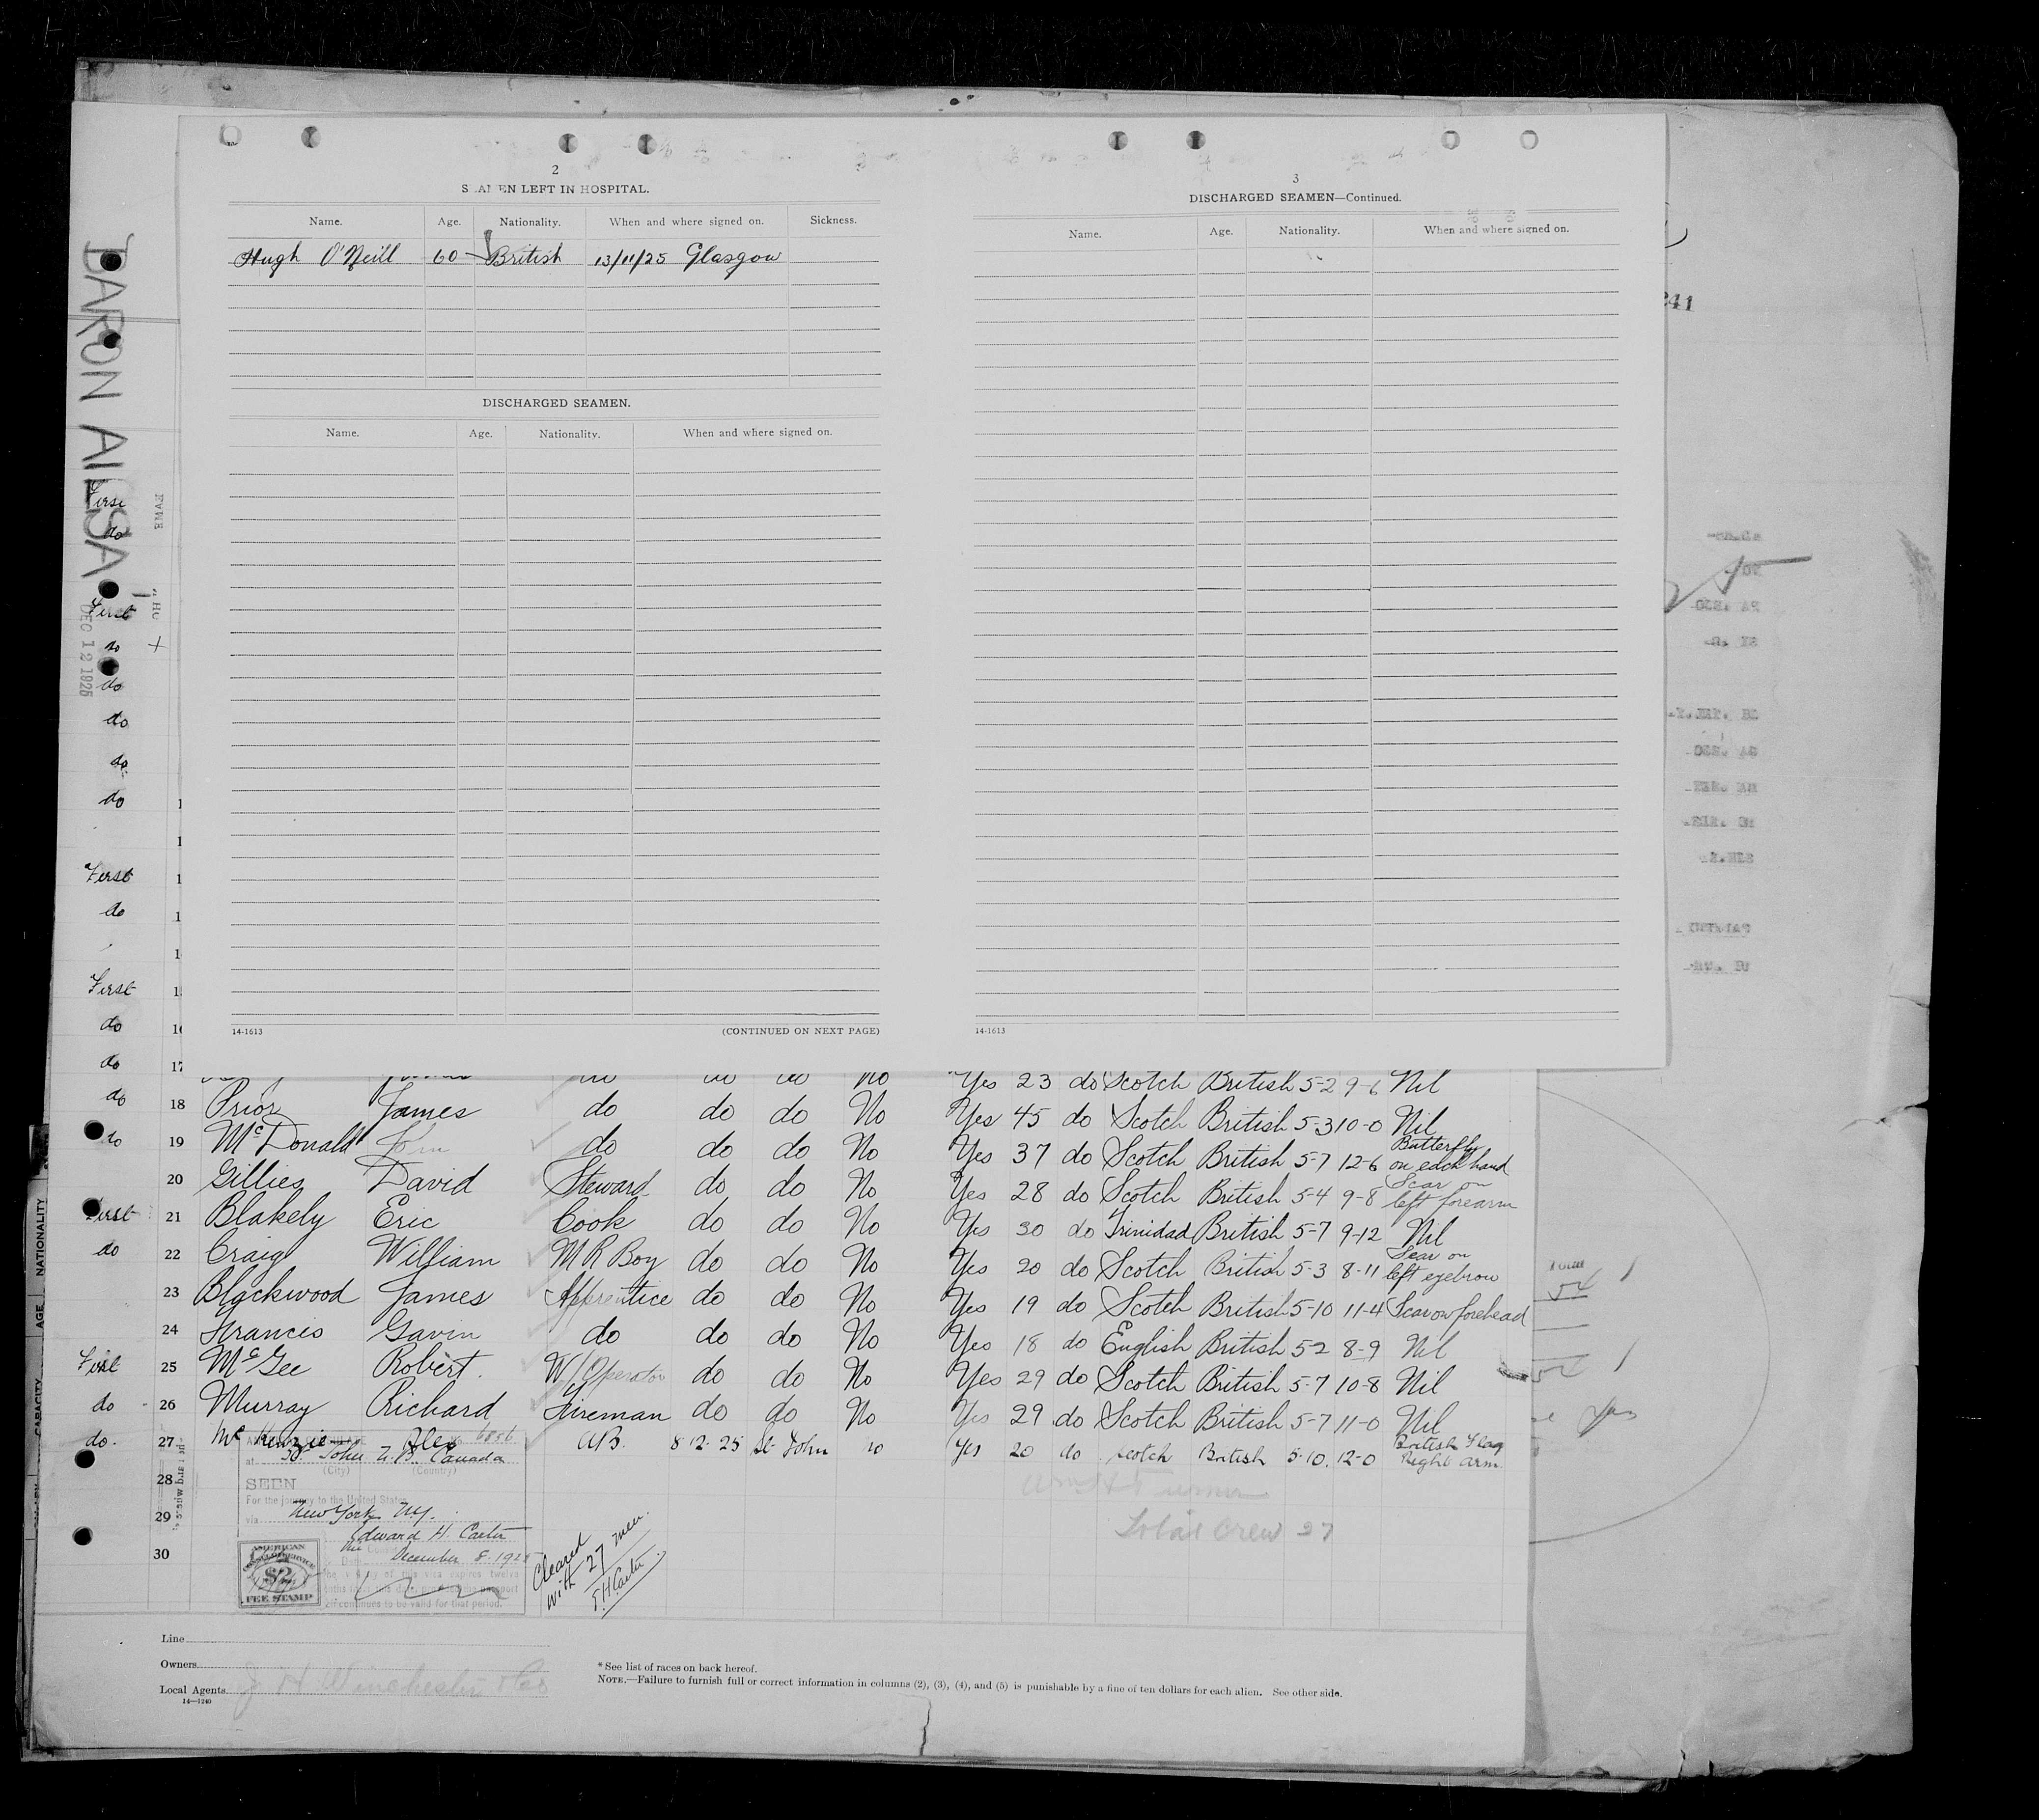 BARON AILSA
DEC 12 1925
2
SEAMEN LEFT IN HOSPITAL.
Name. Age. Nationality. When and where signed on. Sickness.
Hugh O'Neill 60 British 13/11/25 Glasgow
DISCHARGED SEAMEN.
Name. Age. Nationality. When and where signed on.
14-1613 (CONTINUED ON NEXT PAGE)
3
DISCHARGED SEAMEN—Continued.
Name. Age. Nationality. When and where signed on.
14-1613
241
First
do
First
do
do
do
do
do
First
do
First
do
do
17 No Yes 23 do Scotch British 5-2 9-6 Nil
do 18 Prior James do do do No Yes 45 do Scotch British 5-3 10-0 Nil
do 19 McDonald John do do do No Yes 37 do Scotch British 5-7 12-6 Butterfly on each hand
20 Gillies David Steward do do No Yes 28 do Scotch British 5-4 9-8 Scar on left forearm
First 21 Blakely Eric Cook do do No Yes 30 do Trinidad British 5-7 9-12 Nil
do 22 Craig William M R Boy do do No Yes 20 do Scotch British 5-3 8-11 Scar on left eyebrow
23 Blackwood James Apprentice do do No Yes 19 do Scotch British 5-10 11-4 Scar on forehead
24 Francis Gavin do do do No Yes 18 do English British 5-2 8-9 Nil
First 25 McGee Robert. W/Operator do do No Yes 29 do Scotch British 5-7 10-8 Nil
do 26 Murray Richard Fireman do do No Yes 29 do Scotch British 5-7 11-0 Nil
do. 27 McKenzie Alex AB. 8 12. 25 St John no Yes 20 do Scotch British 5-10. 12-0 British Flag Right arm.
at St. John N.B. Canada
(City) (Country)
28
SEEN
For the journey to the United States
29
via New York NY.
Edward H. Carter
30
December 8. 1925
AMERICAN
CONSULAR SERVICE
$2
FEE STAMP
Cleared
with 27 men.
E.H. Carter
Total Crew 27
Total
NATIONALITY
AGE
CAPACITY
Line
Owners
Local Agents J H Winchester & Co
14—1240
* See list of races on back hereof.
NOTE.—Failure to furnish full or correct information in columns (2), (3), (4), and (5) is punishable by a fine of ten dollars for each alien. See other side.